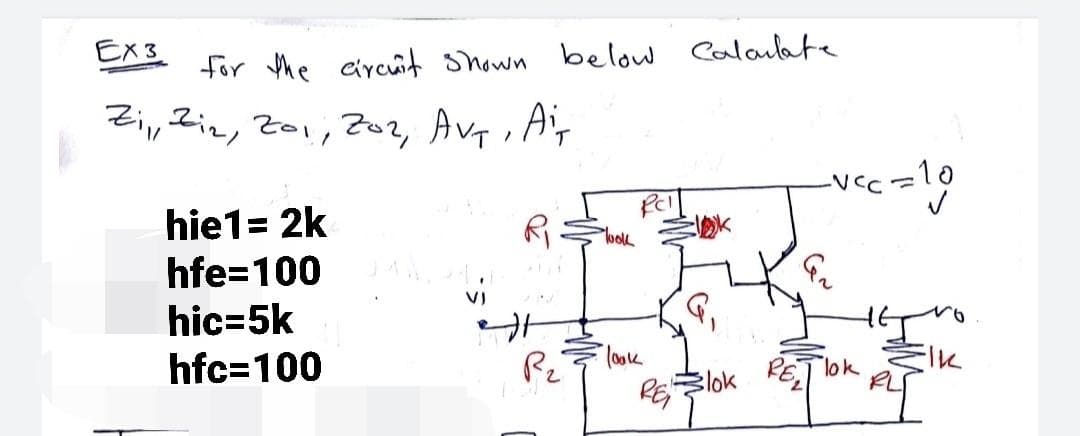 EX3 for the circuit shown below Calculate
Zi1, Zi2, Zo1, Zo2, AvT, AiT
hie1= 2k
hfe=100
hic=5k
hfc=100
VCC = 10 v
R1 100k
RC1
vi
Q1
Q2
vo
R2 100k
RE1 10k
RE2 10k
RL 1k